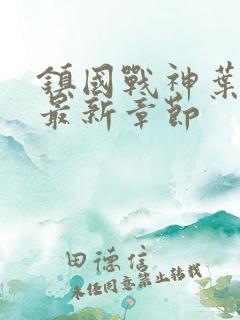 鎮國戰神葉
最新章節
田德信
未经同意禁止转载